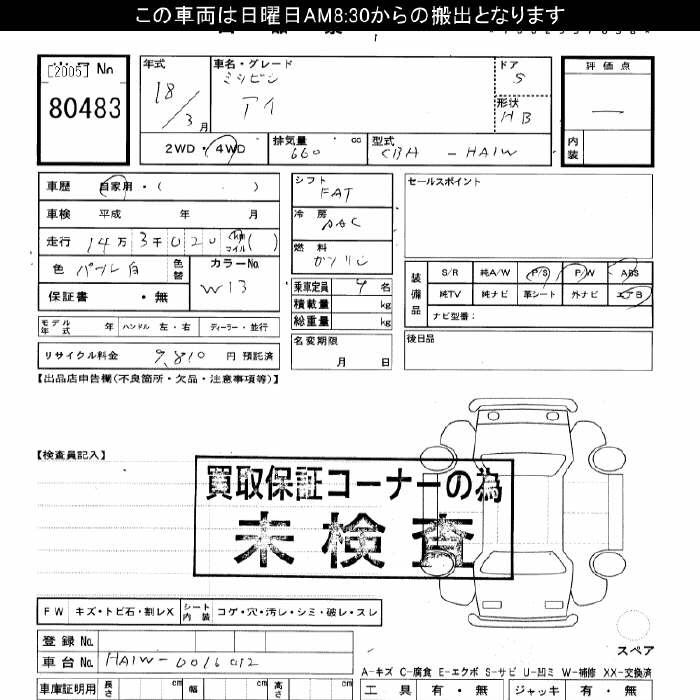 この車両は日曜日AM8:30からの搬出となります
[2005] No
80483
年式
18/3月
車名・グレード
ミツビシ
アイ
ドア
5
形状
HB
評価点
—
内装
2WD・4WD
排気量 660 cc
型式 CBA - HA1W
車歴 自家用・( )
車検 平成 年 月
走行 14万3千020 km マイル ( )
色 パール白 色替
カラーNo. W13
保証書 ・無
モデル年式 年 ハンドル 左・右 ディーラー・並行
リサイクル料金 9,810 円 預託済
シフト FAT
冷房 AAC
燃料 ガソリン
乗車定員 4 名
積載量 kg
総重量 kg
名変期限
月 日
セールスポイント
装備品
S/R 純A/W P/S P/W ABS
純TV 純ナビ 革シート 外ナビ エアB
ナビ型番:
後日品
【出品店申告欄(不良箇所・欠品・注意事項等)】
【検査員記入】
買取保証コーナーの為
未検査
FW キズ・トビ石・割レX シート内装 コゲ・穴・汚レ・シミ・破レ・スレ
登録No.
車台No. HA1W-0016012
車庫証明用 長さ cm 幅 cm 高さ cm
スペア
A-キズ C-腐食 E-エクボ S-サビ U-凹ミ W-補修 XX-交換済
工具 有・無 ジャッキ 有・無